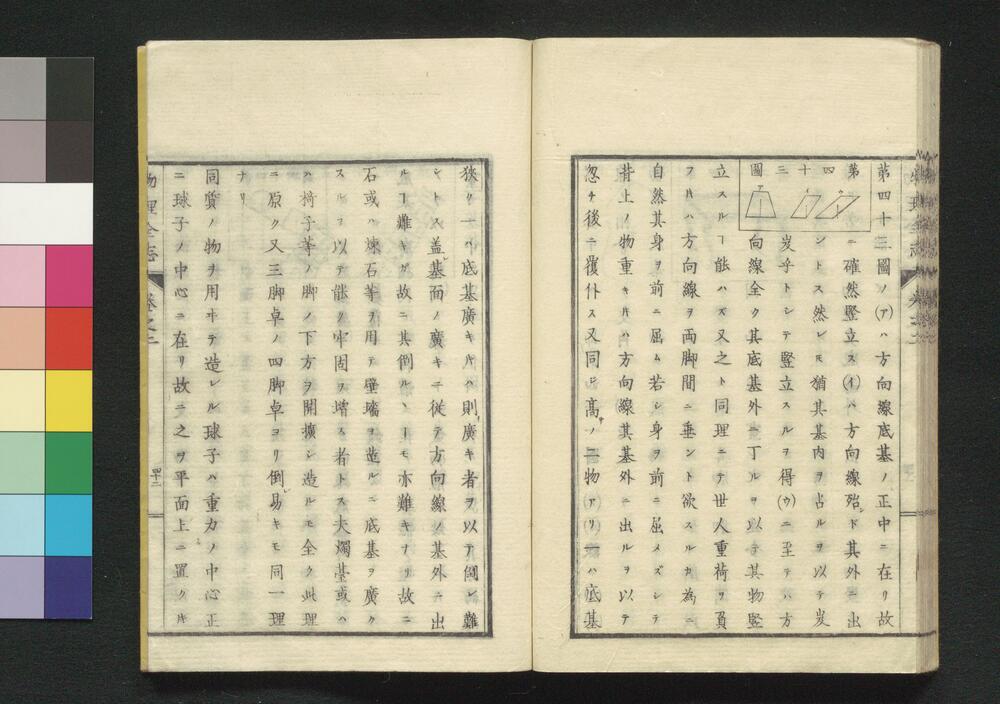 第四十三圖ノ(ア)ハ方向線底基ノ正中ニ在リ故
ニ確然竪立ス(イ)ハ方向線殆ンド其外ニ出
ントス然レ𪜈猶其基内ヲ占ルヲ以テ岌
岌乎トシテ竪立スルヲ得(ウ)ニ至テハ方
向線全ク其底基外ニ丁ルヲ以テ其物竪
第四十三圖
ア
イ
ウ
立スルヿ能ハズ又之ト同理ニテ世人重荷ヲ負
フ𪜈ハ方向線ヲ両脚間ニ垂ント欲スルカ為ニ
自然其身ヲ前ニ屈ム若シ身ヲ前ニ屈メズシテ
背上ノ物重キ𪜈ハ方向線其基外ニ出ルヲ以テ
忽チ後ニ覆仆ス又同ジ高サノ二物(ア)(リ)一ハ底基
狭ク一ハ底基廣キ𪜈ハ則廣キ者ヲ以テ倒レ難
シトス盖シ基面ノ廣キニ従テ方向線ノ基外ニ出
ルヿ難キガ故ニ其倒ルヽヿモ亦難キナリ故ニ
石或ハ煉石等ヲ用テ壁墻ヲ造ルニ底基ヲ廣ク
スルヲ以テ能ク牢固ヲ増ス者トス夫燭䑓或ハ
ハ椅子等ノ脚ノ下方ヲ開擴シ造ルモ全ク此理
ニ原ク又三脚卓ノ四脚卓ヨリ倒レ易キモ同一理
ナリ
同質ノ物ヲ用ヰテ造レル球子ハ重力ノ中心正
ニ球子ノ中心ニ在リ故ニ之ヲ平面上ニ置ク𪜈
物理全志
巻之二
四十二